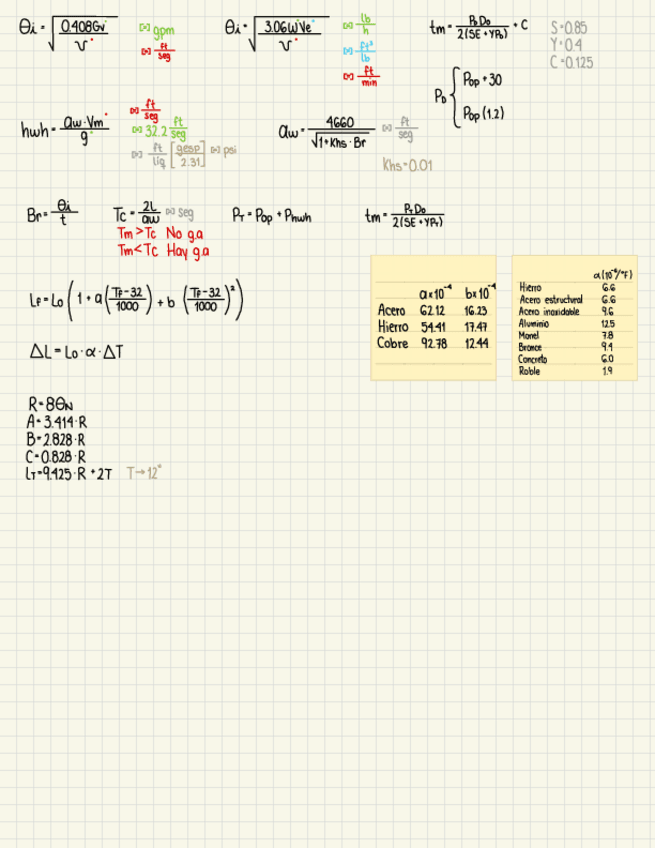 θi = √(0.408Gv / v) [=] gpm [=] ft/seg
θi = √(3.06WVe / v) [=] lb/h [=] ft³/lb [=] ft/min
tm = PD Do / 2(SE + YPD) + C
S=0.85
Y=0.4
C=0.125
PD { Pop + 30
Pop (1.2)
hwh = aw · Vm / g [=] ft/seg [=] 32.2 ft/seg [=] ft liq [gesp / 2.31] [=] psi
aw = 4660 / √(1 + Khs · Br) [=] ft/seg
Khs=0.01
Br = θi / t
Tc = 2L / aw [=] seg
Tm > Tc No g.a
Tm < Tc Hay g.a
PT = Pop + Phwh
tm = PT Do / 2(SE + YPT)
LF = Lo (1 + a (TF-32 / 1000) + b (TF-32 / 1000)²)
ΔL = Lo · α · ΔT
a x 10⁻⁴ b x 10⁻⁴
Acero 62.12 16.23
Hierro 54.41 17.47
Cobre 92.78 12.44
α (10⁻⁶/°F)
Hierro 6.6
Acero estructural 6.6
Acero inoxidable 9.6
Aluminio 12.5
Monel 7.8
Bronce 9.4
Concreto 6.0
Roble 1.9
R = 8θN
A = 3.414 · R
B = 2.828 · R
C = 0.828 · R
LT = 9.425 · R + 2T T → 12"